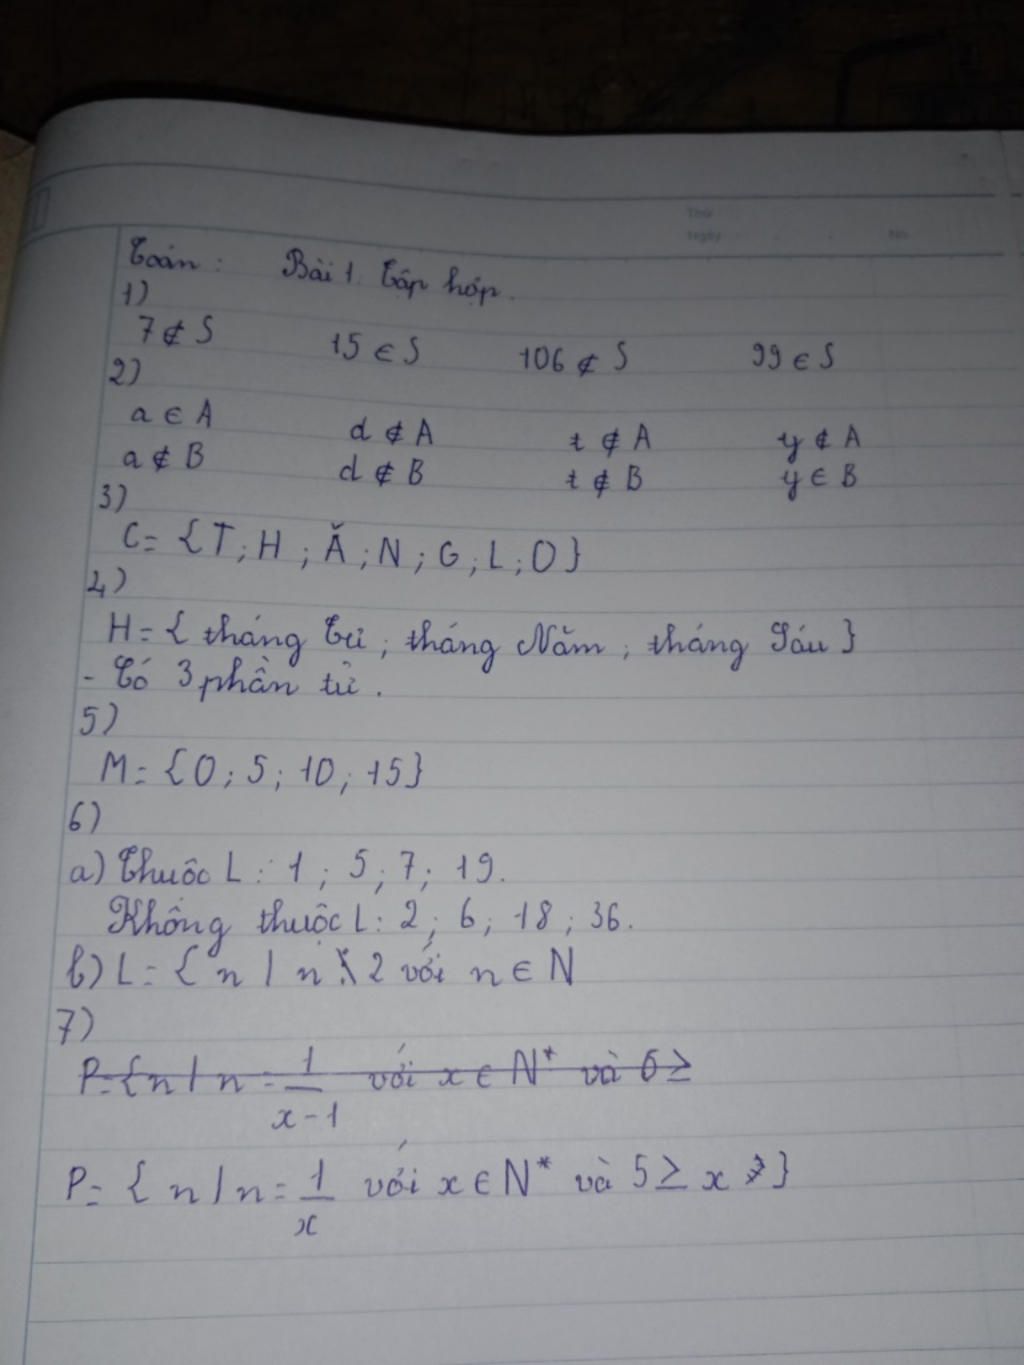 Thứ
Ngày No.
Toán: Bài 1. Tập hợp.
1)
7 ∉ S 15 ∈ S 106 ∉ S 99 ∈ S
2)
a ∈ A d ∉ A t ∉ A y ∉ A
a ∉ B d ∉ B t ∉ B y ∈ B
3)
C= {T; H; Ă; N; G; L; O}
4)
H= { tháng Tư; tháng Năm; tháng Sáu}
- Có 3 phần tử.
5)
M= {0; 5; 10; 15}
6)
a) Thuộc L: 1; 5; 7; 19.
Không thuộc L: 2; 6; 18; 36.
b) L= { n | n ⋮̸ 2 với n ∈ N
7)
P= {n | n = 1/(x-1) với x ∈ N* và 6 ≥
P= { n | n = 1/x với x ∈ N* và 5 ≥ x }